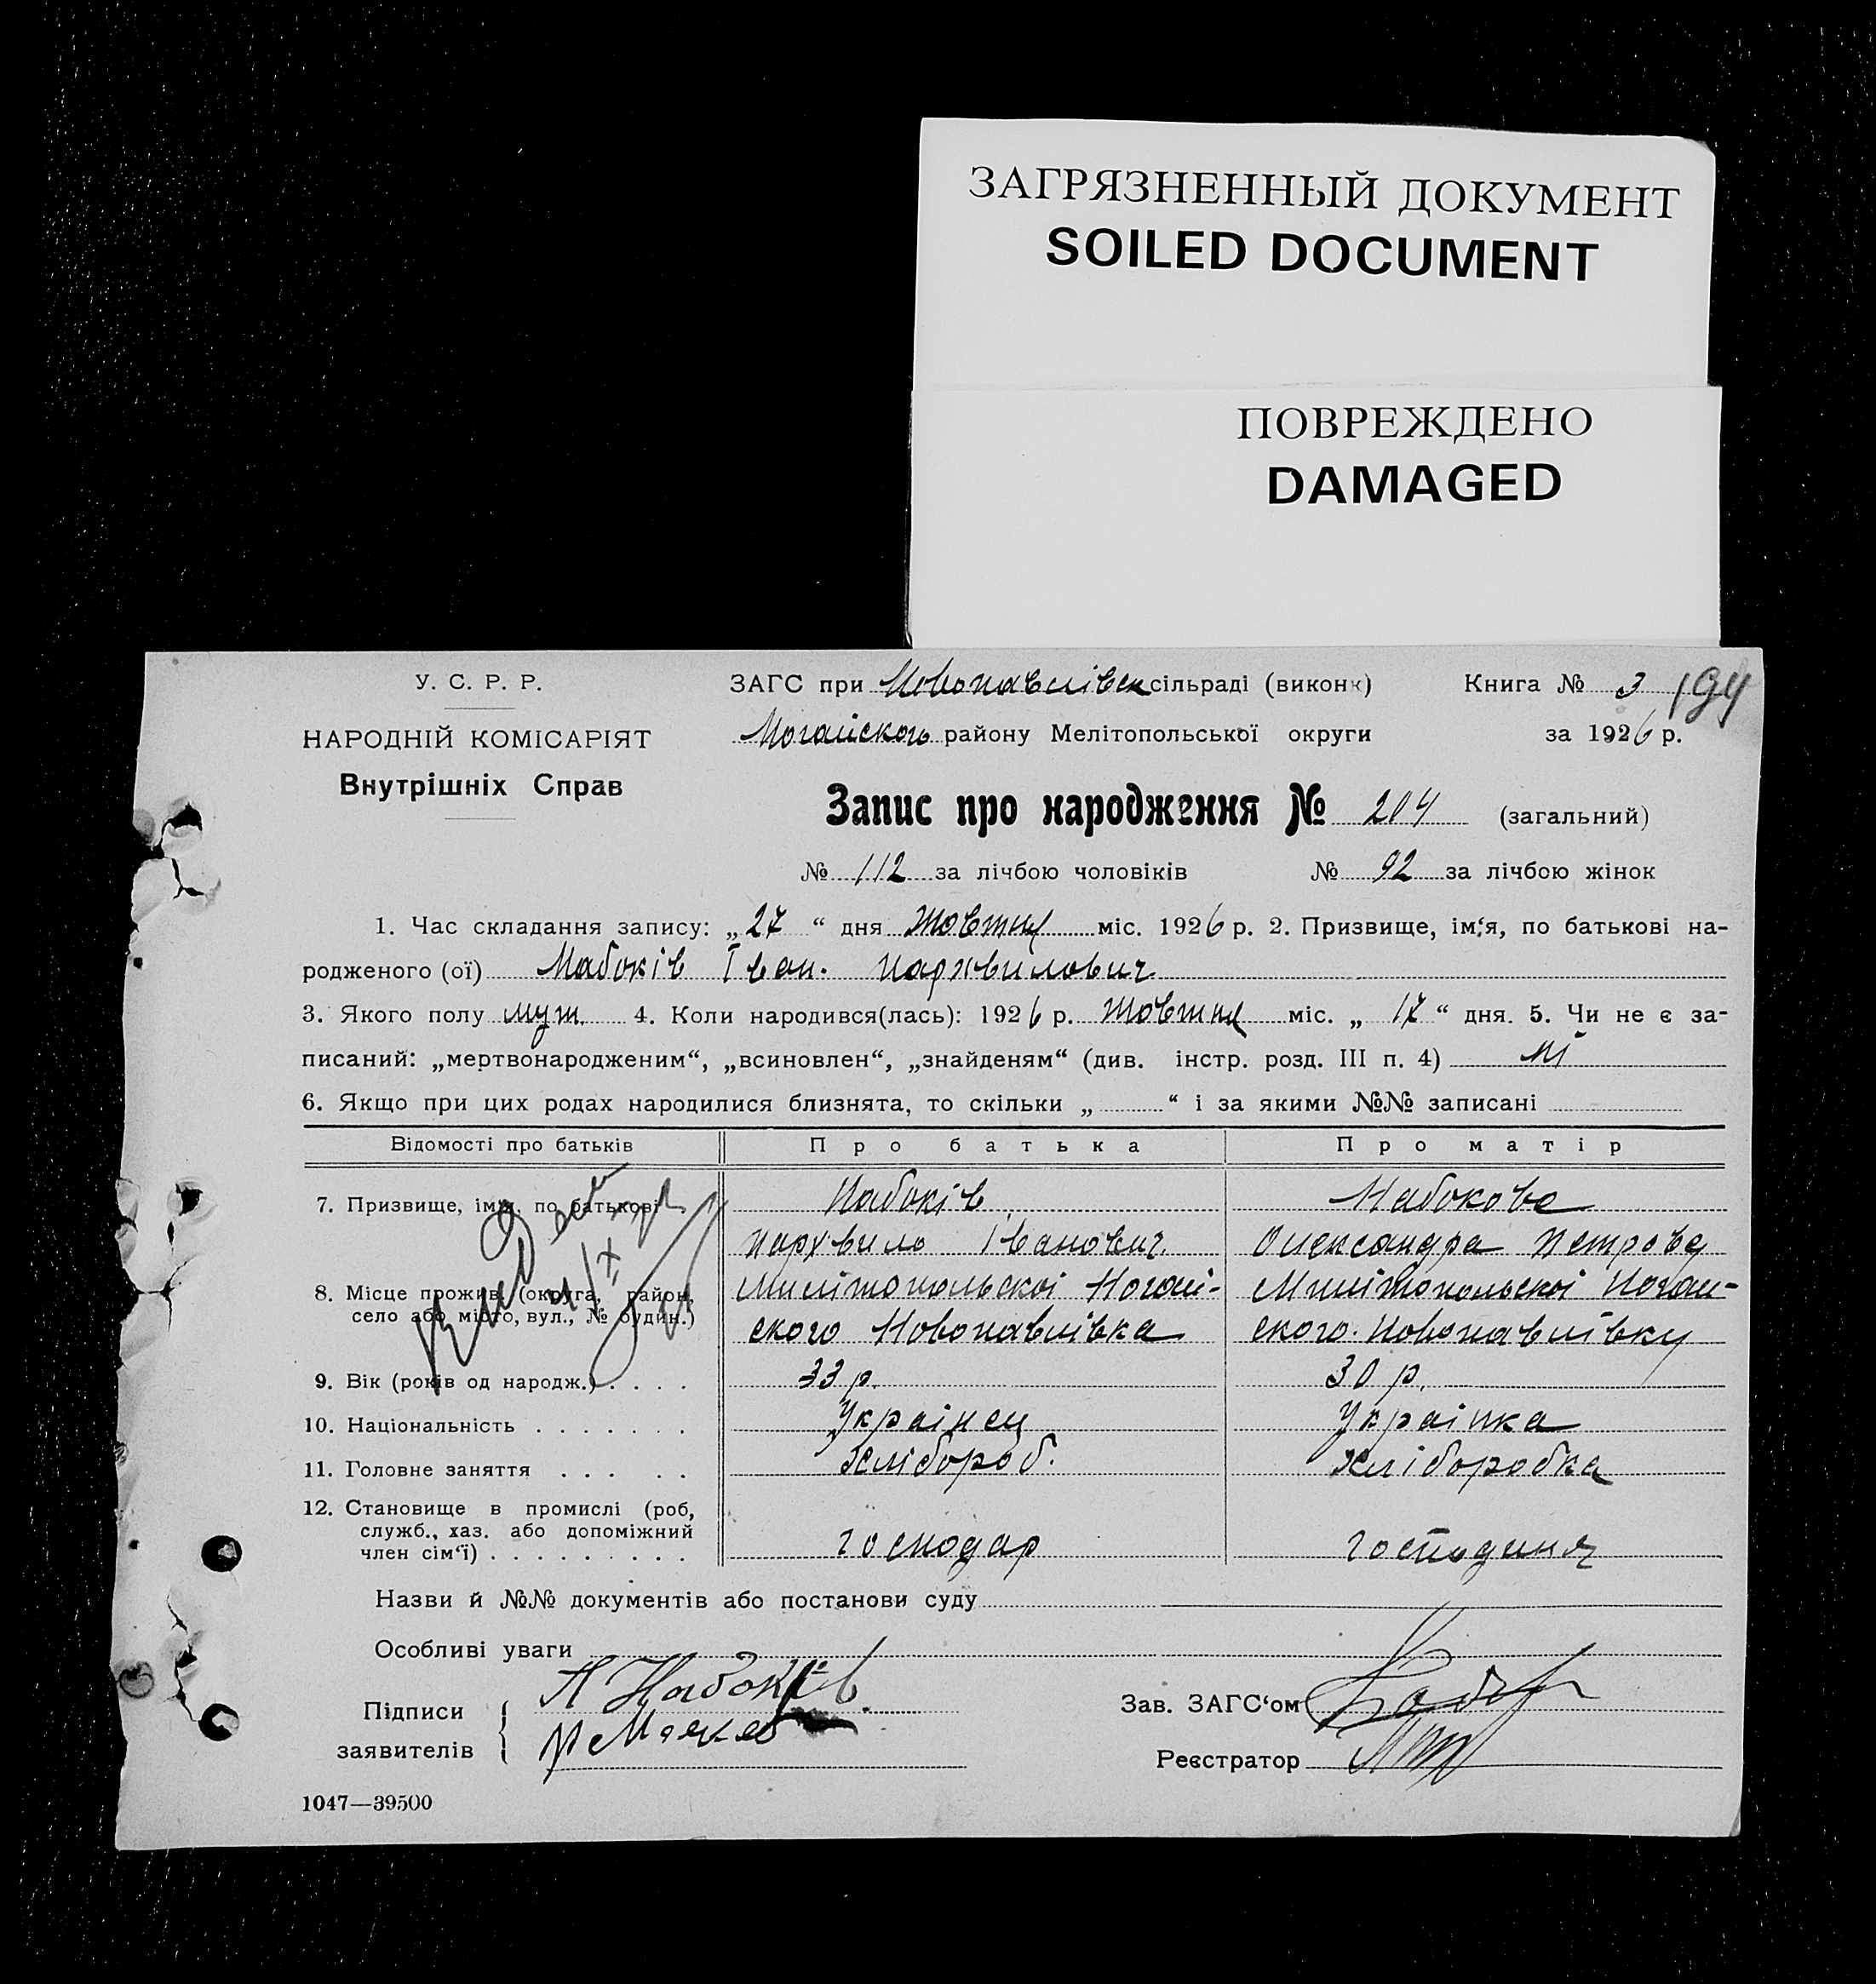 ЗАГРЯЗНЕННЫЙ ДОКУМЕНТ
SOILED DOCUMENT
ПОВРЕЖДЕНО
DAMAGED
У. С. Р. Р.
НАРОДНІЙ КОМІСАРІЯТ
Внутрішніх Справ
ЗАГС при Новопавлівск сільраді (виконк) Книга № 3 194
Ногайского району Мелітопольської округи за 1926 р.
Запис про народження № 204 (загальний)
№ 112 за лічбою чоловіків № 92 за лічбою жінок
1. Час складання запису: „27“ дня жовтня міс. 1926 р. 2. Призвище, ім‘я, по батькові на-
родженого (ої) Набоків Іван. Пархвилович
3. Якого полу муж. 4. Коли народився(лась): 1926 р. жовтня міс. „17“ дня. 5. Чи не є за-
писаний: „мертвонародженим“, „всиновлен“, „знайденям“ (див. інстр. розд. III п. 4) ні
6. Якщо при цих родах народилися близнята, то скільки „ “ і за якими №№ записані
Відомості про батьків Про батька Про матір
7. Призвище, ім‘я, по батькові Набоків Набокова
Пархвило Іванович Олександра Петровa
8. Місце прожив. (округа, район, Милітопольскоі Ногай- Милітопольскоі Ногай-
село або місто, вул., № будин.) ского Новопавлівка ского. Новопавлівку
9. Вік (років од народж.) . . . . 33 р. 30 р.
10. Національність . . . . . . . Українец Українка
11. Головне заняття . . . . . Хлібороб. Хліборобка
12. Становище в промислі (роб,
служб., хаз. або допоміжний
член сім‘ї) . . . . . . . . . господар господиня
Назви й №№ документів або постанови суду
Особливі уваги
Підписи П Набоків
заявителів
Зав. ЗАГС‘ом
Реєстратор
1047—39500